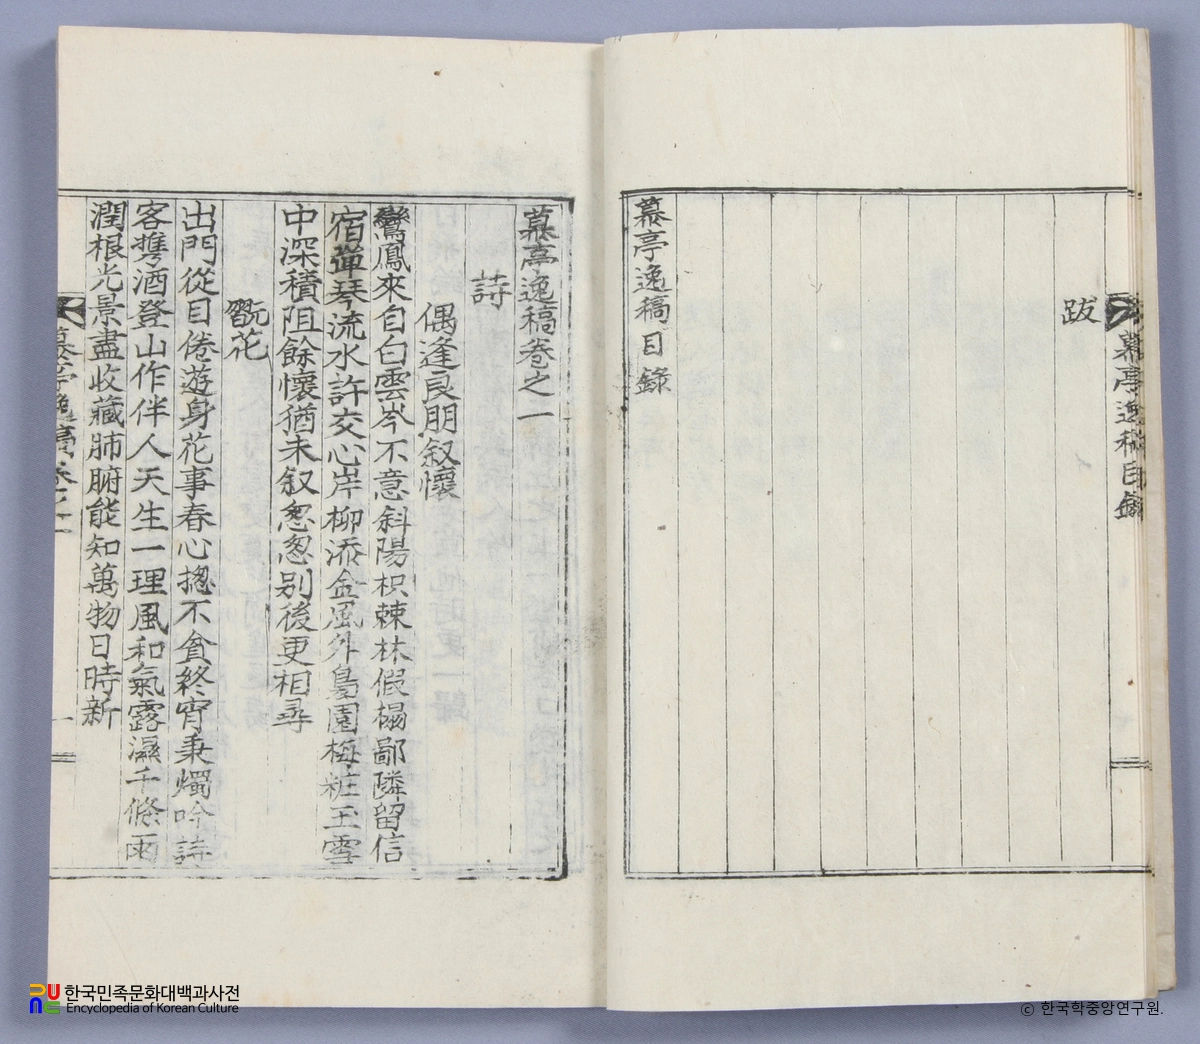 慕亭逸稿目錄
跋
慕亭逸稿目錄
慕亭逸稿卷之一
詩
偶逢良朋叙懷
鸞鳳來自白雲岑不意斜陽枳棘林假榻鄙隣留信
宿彈琴流水許交心岸柳添金風外裊園梅粧玉雪
中深積阻餘懷猶未叙怱怱別後更相尋
翫花
出門從目倦遊身花事春心摠不貧終宵秉燭吟詩
客携酒登山作伴人天生一理風和氣露濕千條雨
潤根光景盡收藏肺腑能知萬物日時新
慕亭逸稿卷之一
一
한국민족문화대백과사전
Encyclopedia of Korean Culture
ⓒ 한국학중앙연구원.